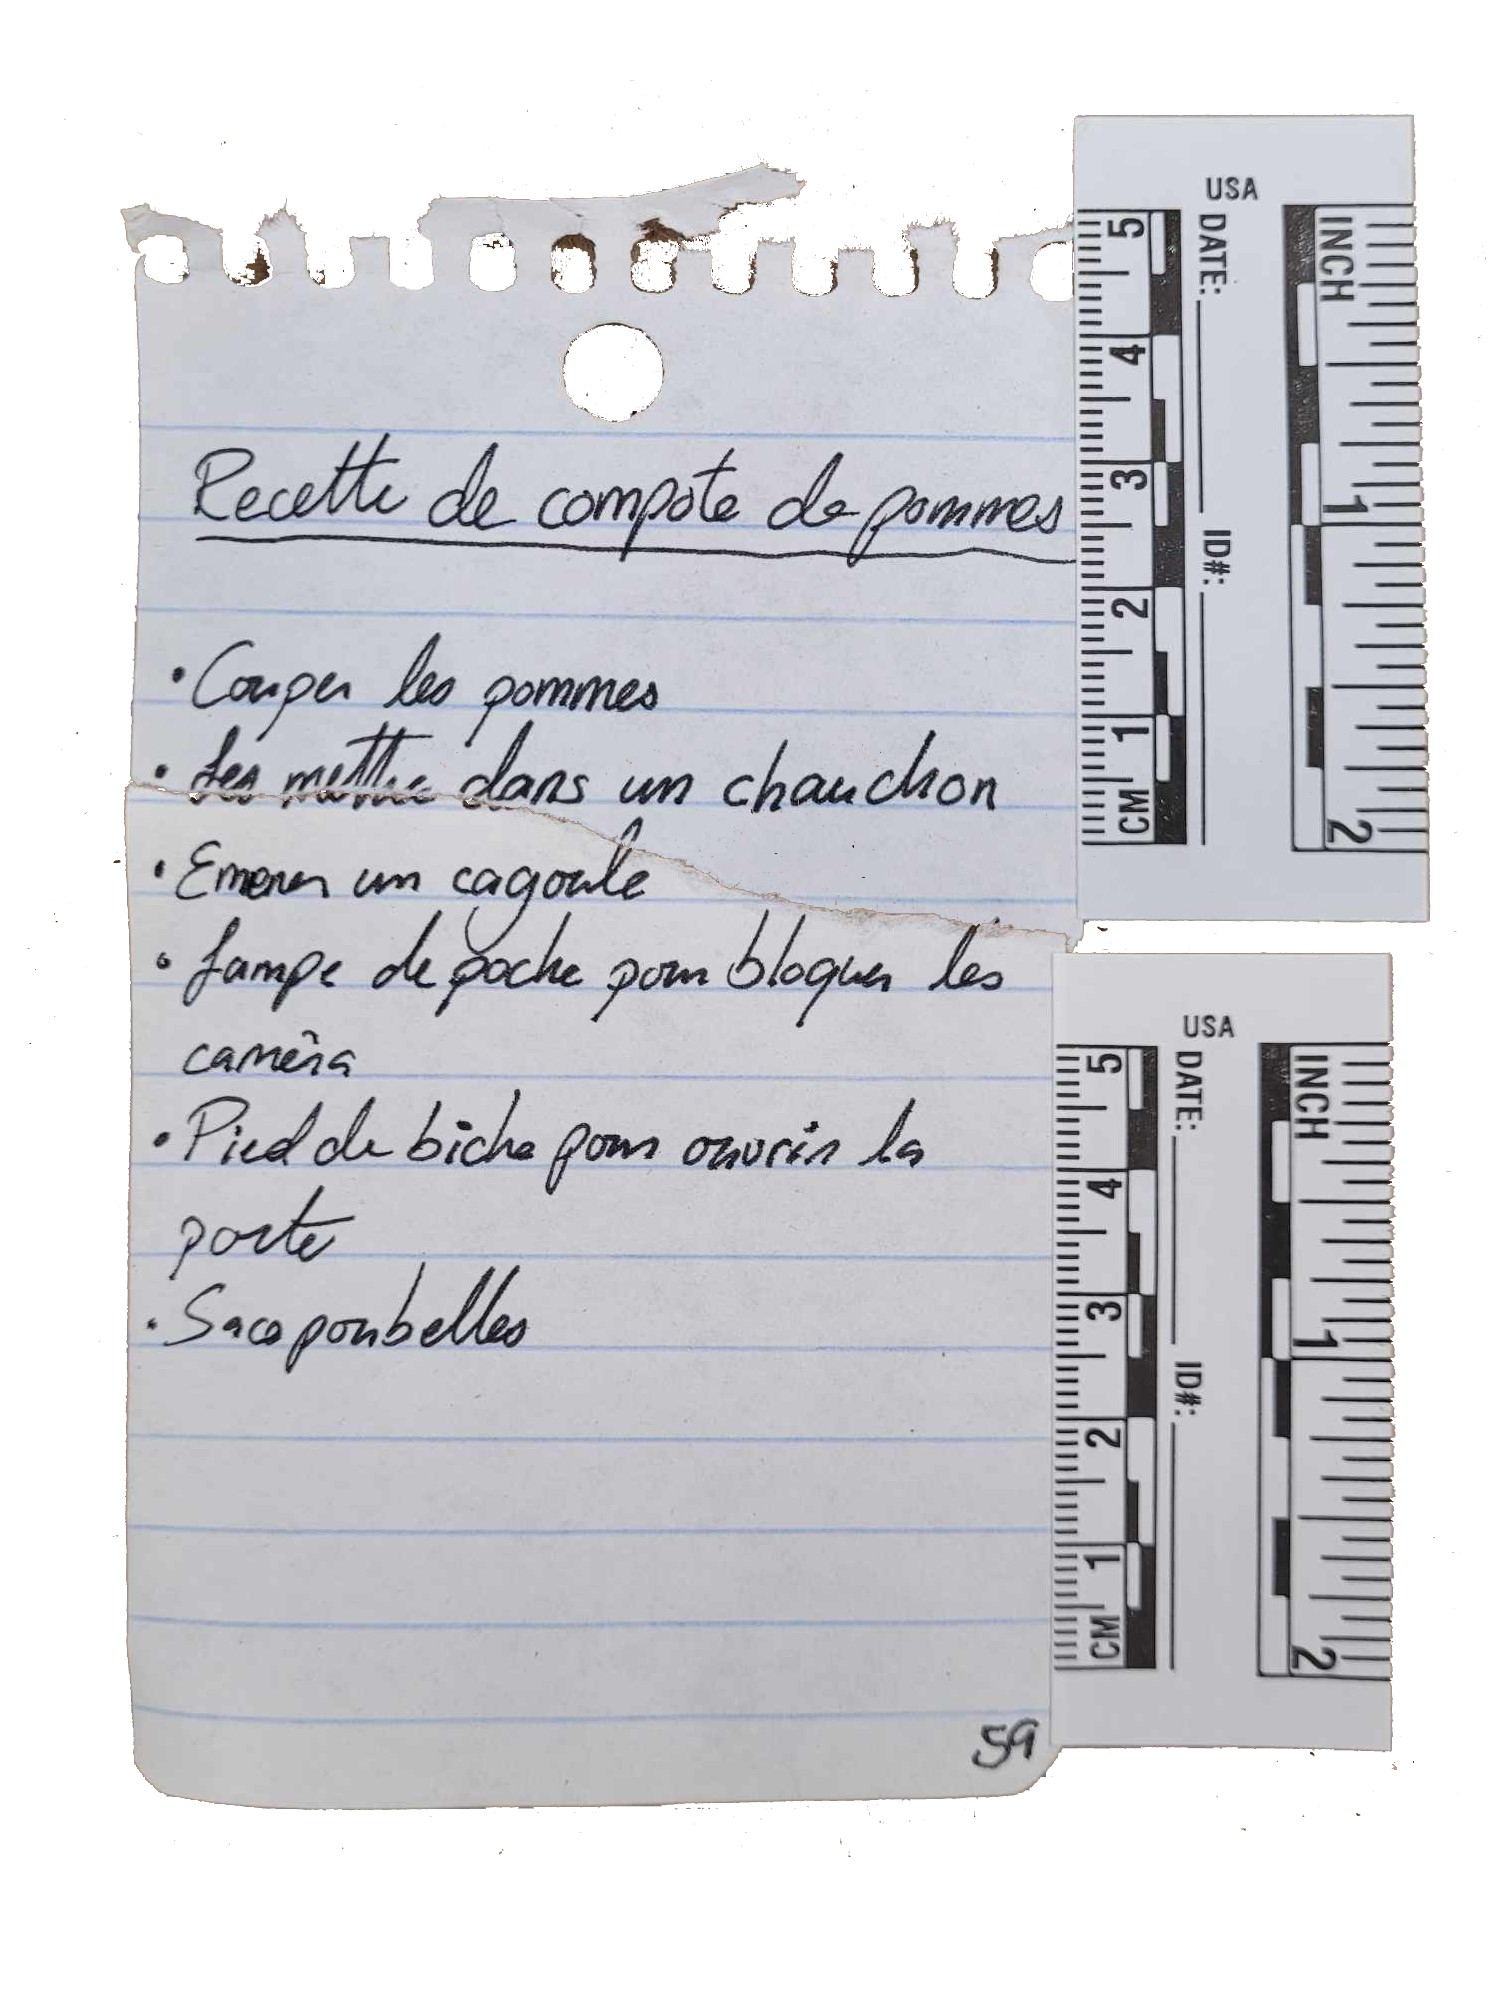 Recette de compote de pommes
• Couper les pommes
• Les mettre dans un chauchon
• Emener un cagoule
• Lampe de poche pour bloquer les
caméra
• Pied de biche pour ouvrir la
porte
• Sacs poubelles
59
USA
DATE:
ID#:
5
4
3
2
1
CM
INCH
1
2
USA
DATE:
ID#:
5
4
3
2
1
CM
INCH
1
2